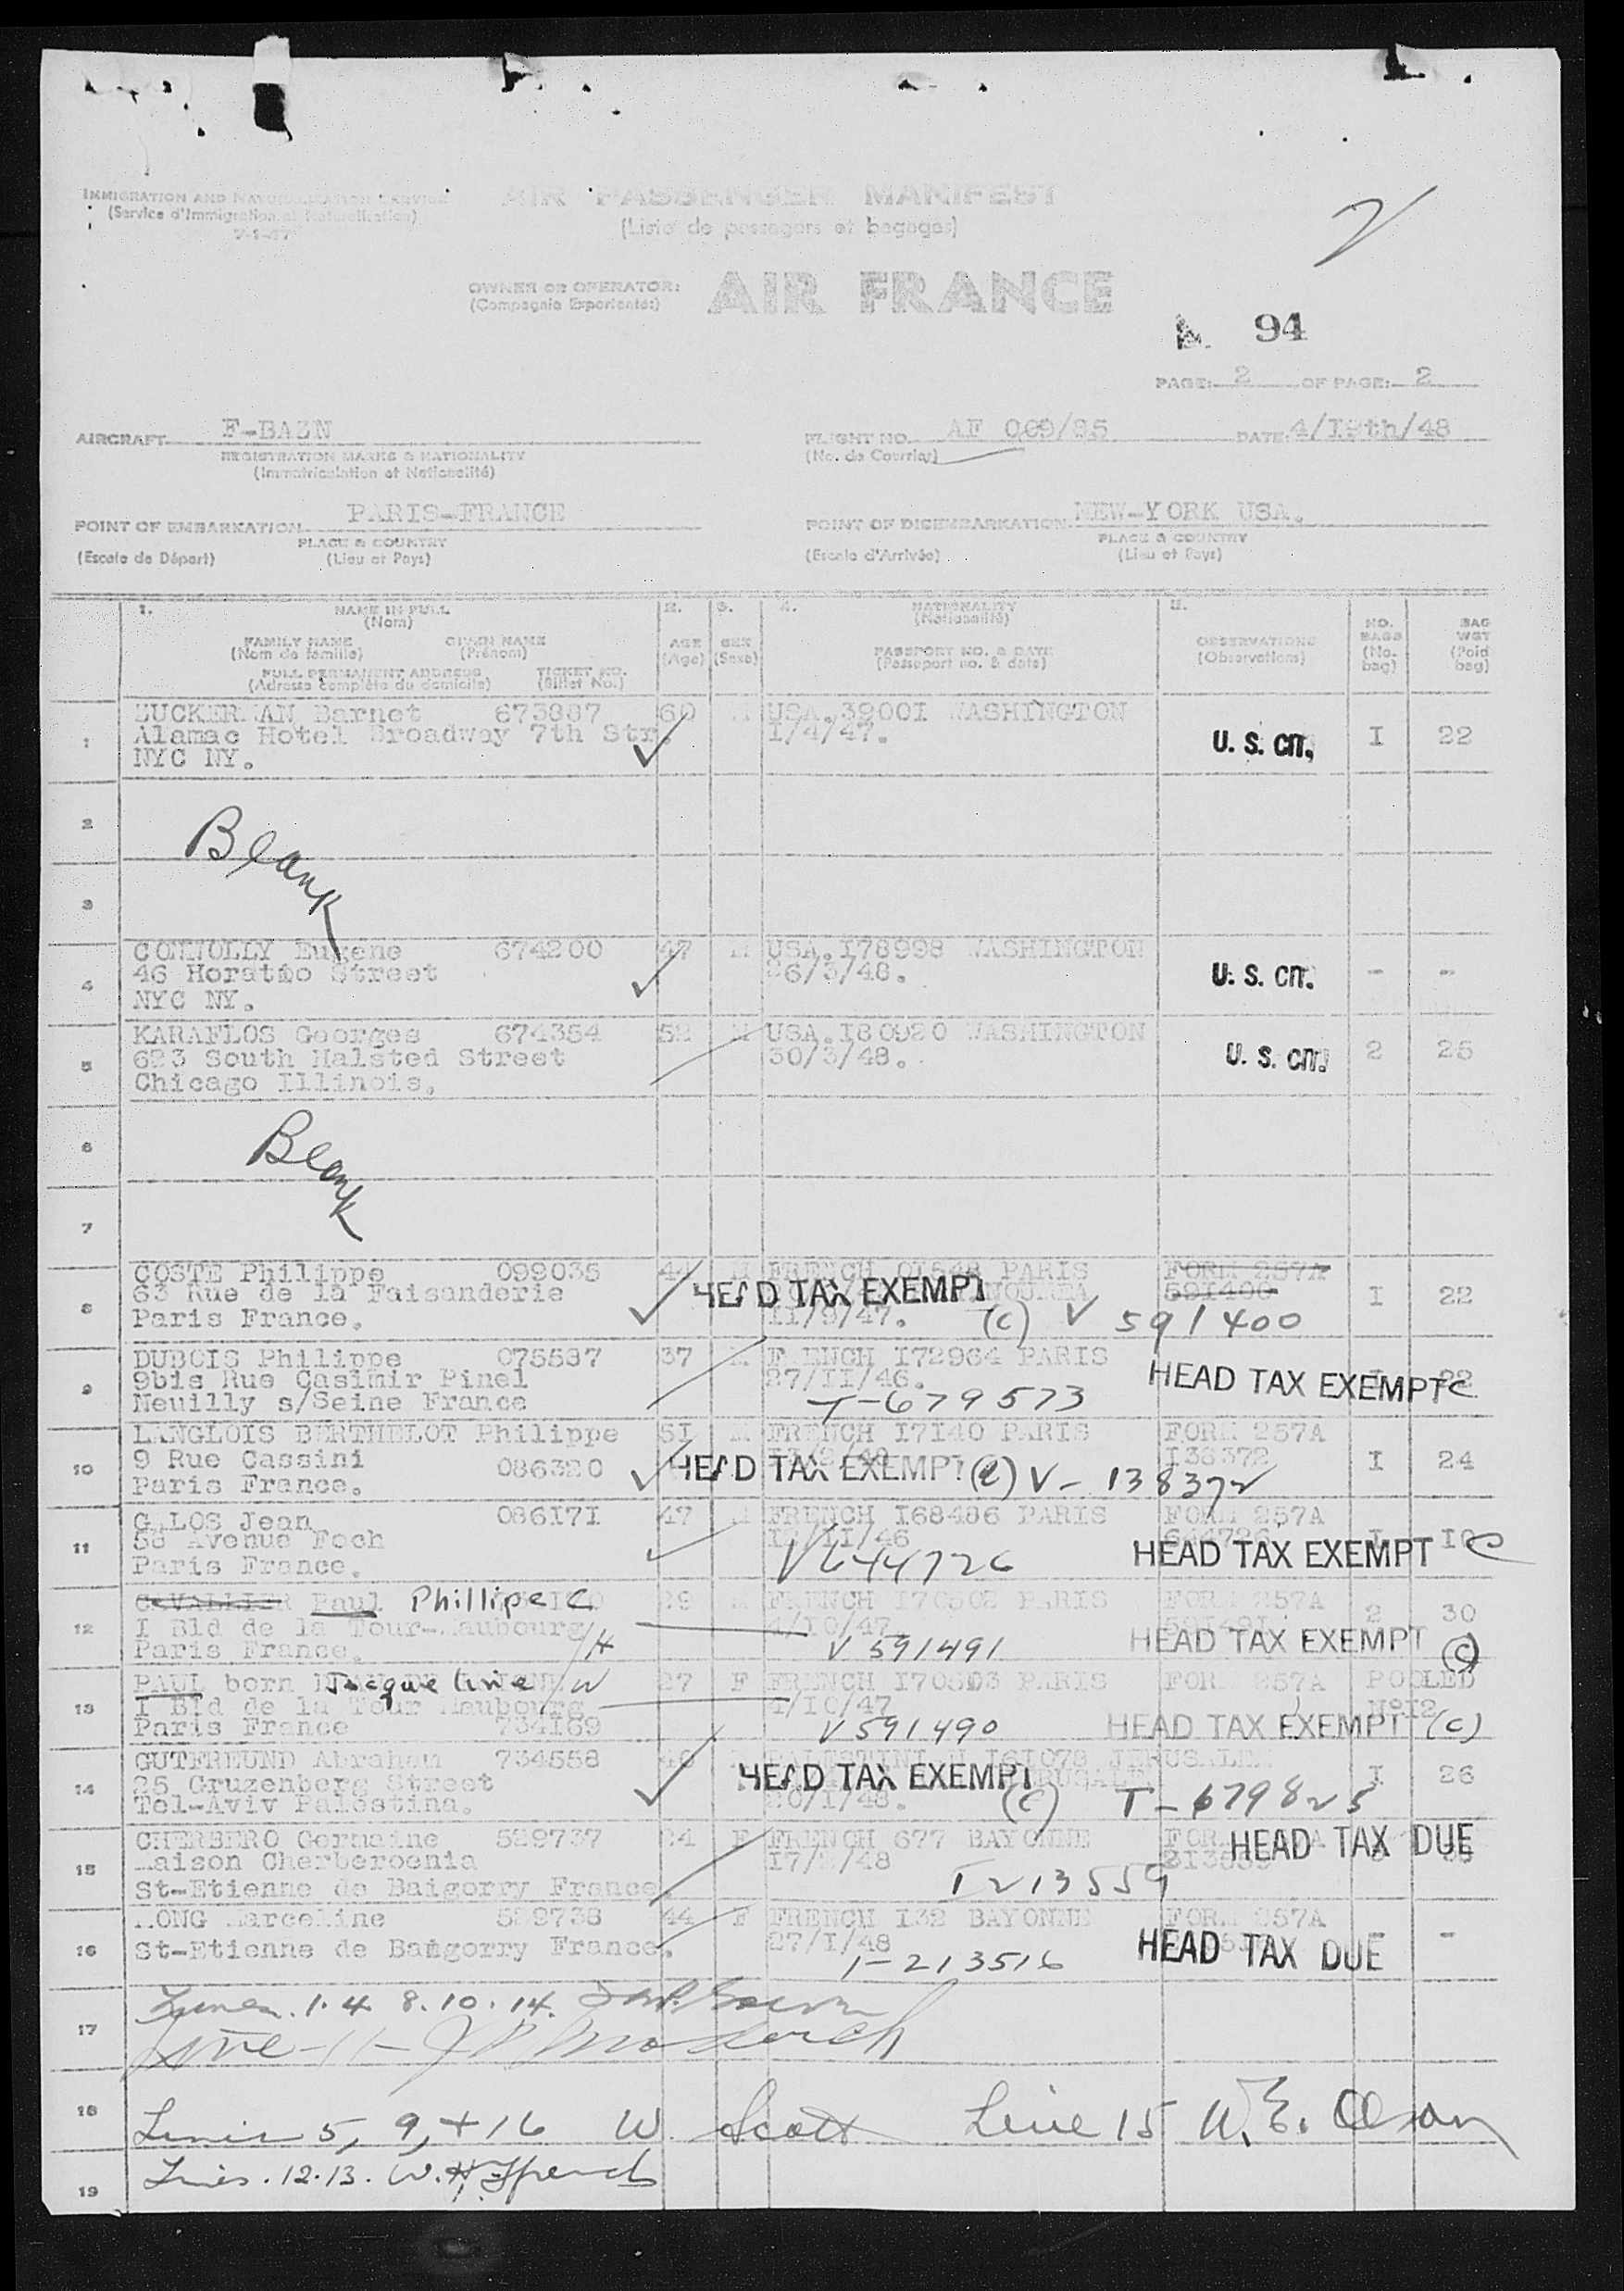 IMMIGRATION AND NATURALIZATION SERVICE
(Service d'Immigration et Naturalisation)
AIR PASSENGER MANIFEST
(Liste de passagers et bagages)
OWNER OR OPERATOR:
(Compagnie Exploitante:)
AIR FRANCE
94
PAGE: 2 OF PAGE: 2
AIRCRAFT F-BAZN
REGISTRATION MARKS & NATIONALITY
(Immatriculation et Nationalité)
FLIGHT NO. AF 009/95 DATE: 4/I9th/48
(No. de Courrier)
POINT OF EMBARKATION PARIS-FRANCE
PLACE & COUNTRY
(Escale de Départ) (Lieu et Pays)
POINT OF DISEMBARKATION NEW-YORK USA.
PLACE & COUNTRY
(Escale d'Arrivée) (Lieu et Pays)
1. NAME IN FULL
(Nom)
FAMILY NAME GIVEN NAME
(Nom de famille) (Prénom)
FULL PERMANENT ADDRESS TICKET NO.
(Adresse complète du domicile) (Billet No.)
2. AGE (Age)
3. SEX (Sexe)
4. NATIONALITY
(Nationalité)
PASSPORT NO. & DATE
(Passeport no. & date)
5. OBSERVATIONS
(Observations)
NO. BAGS (No. bag)
BAG WGT (Poid bag)
1 ZUCKERMAN Barnet 673887 60 M USA.39001 WASHINGTON
Alamac Hotel Broadway 7th Str. I/4/47. U. S. CIT. I 22
NYC NY.
2
Blank
3
4 CONNOLLY Eugene 674200 47 M USA.I78998 WASHINGTON
46 Horatio Street 26/3/48. U. S. CIT. - -
NYC NY.
5 KARAFLOS Georges 674354 52 M USA.I80920 WASHINGTON
623 South Halsted Street 30/3/48. U. S. CIT. 2 25
Chicago Illinois.
6
Blank
7
8 COSTE Philippe 099035 44 M FRENCH 01548 PARIS FORM 257A
63 Rue de la Faisanderie HEAD TAX EXEMPT 591400 I 22
Paris France. 11/9/47. (c) V 591400
9 DUBOIS Philippe 075587 37 M FRENCH I72964 PARIS
9bis Rue Casimir Pinel 27/II/46. HEAD TAX EXEMPT C 22
Neuilly s/Seine France T-679573
10 LANGLOIS BERTHELOT Philippe 51 M FRENCH I7I40 PARIS FORM 257A
9 Rue Cassini 086320 HEAD TAX EXEMPT 138372 I 24
Paris France. (c) V- 138372
11 GALOS Jean 086171 47 M FRENCH I68486 PARIS FORM 257A
58 Avenue Foch I2/II/46 644726 I
Paris France. V 644726 HEAD TAX EXEMPT C
12 CAVALLIER Paul Phillipe C 29 M FRENCH I70502 PARIS FORM 257A
I Bld de la Tour-Maubourg 4/I0/47 591491 2 30
Paris France. /H V 591491 HEAD TAX EXEMPT (c)
13 PAUL born Jacqueline /W 27 F FRENCH I70503 PARIS FORM 257A POOLED
I Bld de la Tour Maubourg 4/I0/47 N°12
Paris France 734169 V 591490 HEAD TAX EXEMPT (c)
14 GUTFREUND Abraham 734558 PALESTINIAN I61078 JERUSALEM
25 Gruzenberg Street HEAD TAX EXEMPT I 26
Tel-Aviv Palestina. 20/I/48. (c) T-679825
15 CHERBERO Germaine 529737 24 F FRENCH 677 BAYONNE
Maison Cherberoenia 17/2/48 HEAD TAX DUE
St-Etienne de Baigorry France. T 213559
16 MONG Marceline 529738 44 F FRENCH I32 BAYONNE FORM 257A
St-Etienne de Baigorry France. 27/I/48 -
T-213516 HEAD TAX DUE
17 Lines. 1. 4 8. 10. 14.
Line-11-
18 Lines 5, 9, + 16 W. Scott Line 15 W. E. Olson
19 Lines. 12. 13. W. H.